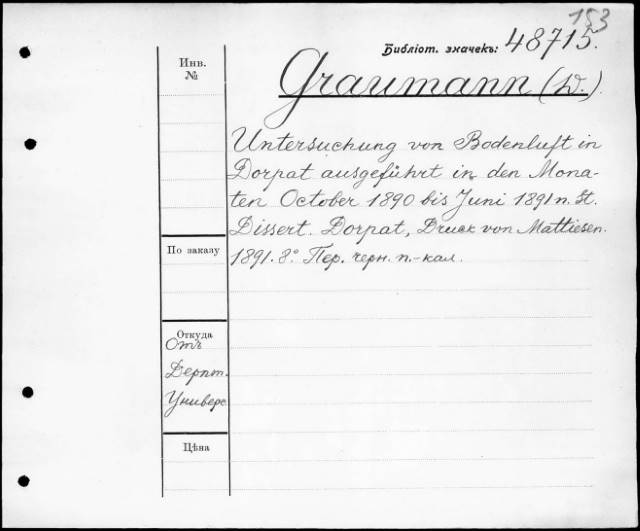 153
Библіот. значекъ: 48715.
Инв.
№
Graumann (W.).
Untersuchung von Bodenluft in
Dorpat ausgeführt in den Mona-
ten October 1890 bis Juni 1891 n. St.
Dissert. Dorpat, Druck von Mattiesen.
1891. 8° Пер. черн. п.-кал.
По заказу
Откуда
Отъ
Дерпт.
Универс
Цѣна